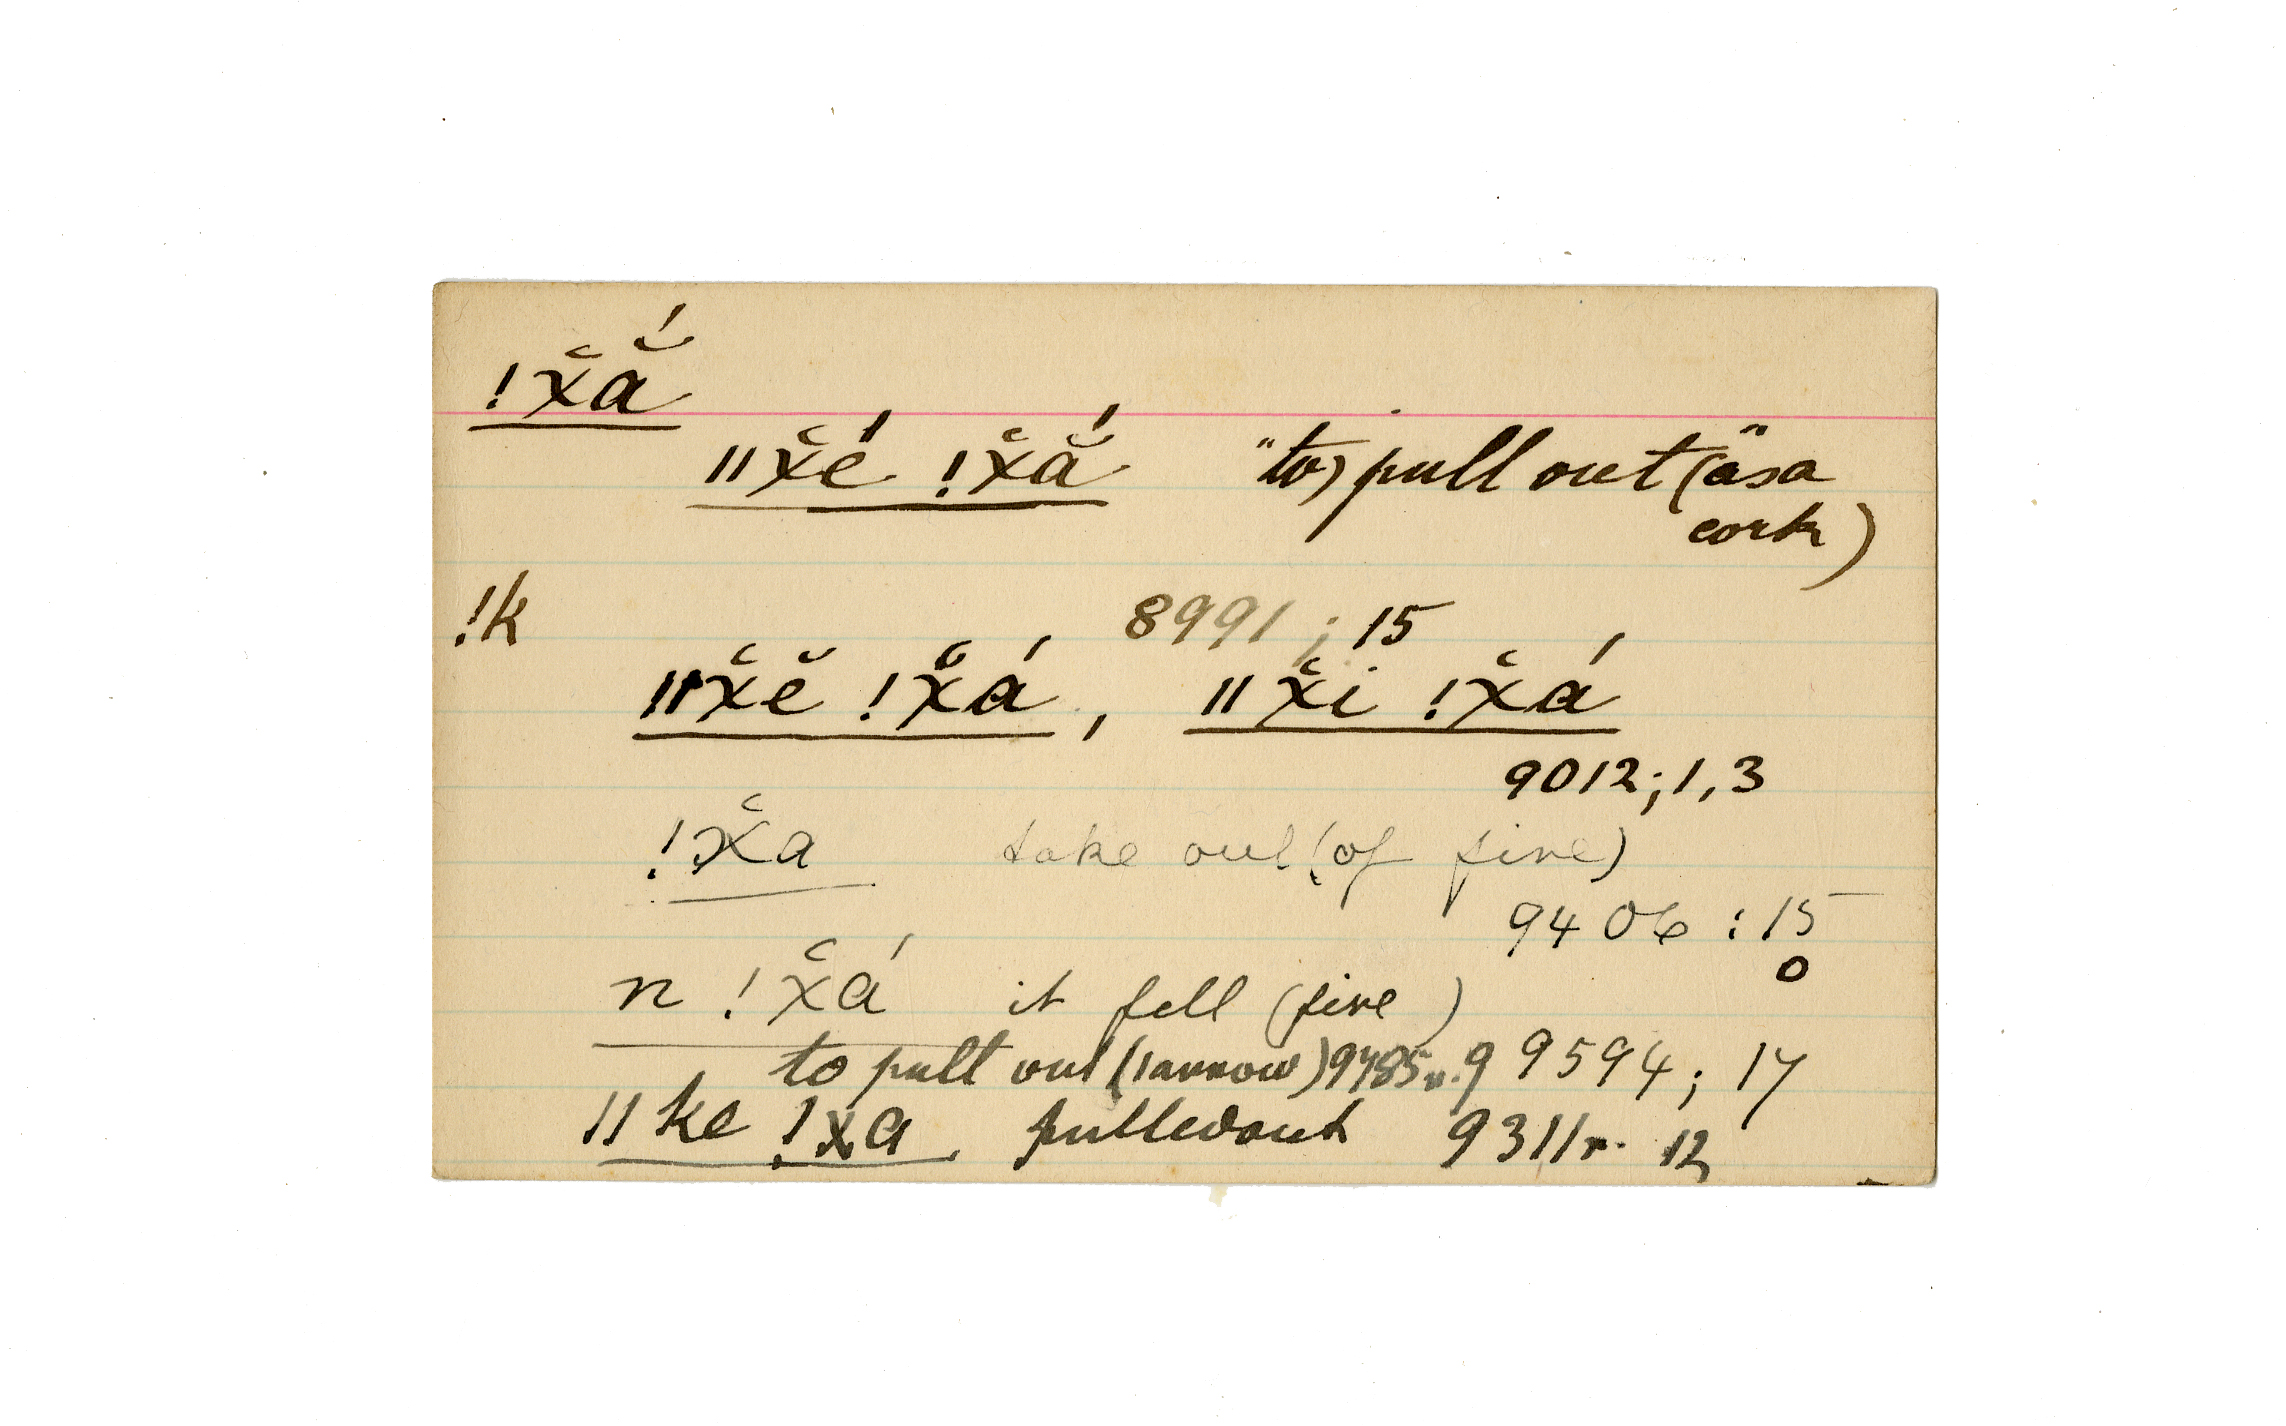 !χ̆ắ
ǁχ̆é !χ̆ắ "to) pull out (äs a
cork)
!k 8991; 15
ǁχ̆ĕ !χ̆á, ǁχ̆i !χ̆á
9012; 1, 3
!χ̆a take out (of fire)
9406 : 15
0
n !χ̆á it fell (fire)
to pull out (1 arrow) 9485 n. 9 9594; 17
ǁke !χa pulled out 9311 r. 12